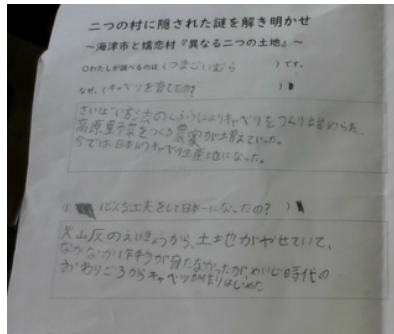 二つの村に隠された謎を解き明かせ
～海津市と嬬恋村『異なる二つの土地』～
○わたしが調べるのは(つまごいむら)です。
なぜ、(キャベツを育てたの?)
さいばい方法のくふうによりキャベツをつくり始められ、
高原野菜をつくる農家が増えていった。
今では日本一のキャベツ生産地になった。
(どんな工夫をして日本一になったの?)
火山灰のえいきょうから、土地がやせていて、
なかなか作物が育たなかったが、めいじ時代の
おわりごろからキャベツが作りはじめた